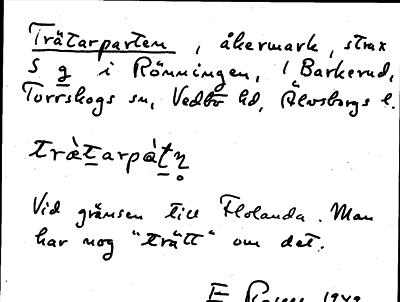 Trätarparten, åkermark, strax
S g i Rönningen, 1 Barkerud,
Torrskogs sn, Vedbo hd, Älvsborgs l.
trä̀tarpà̀tn̥
Vid gränsen till Holanda. Man
har nog "trätt" om det.
E 1949